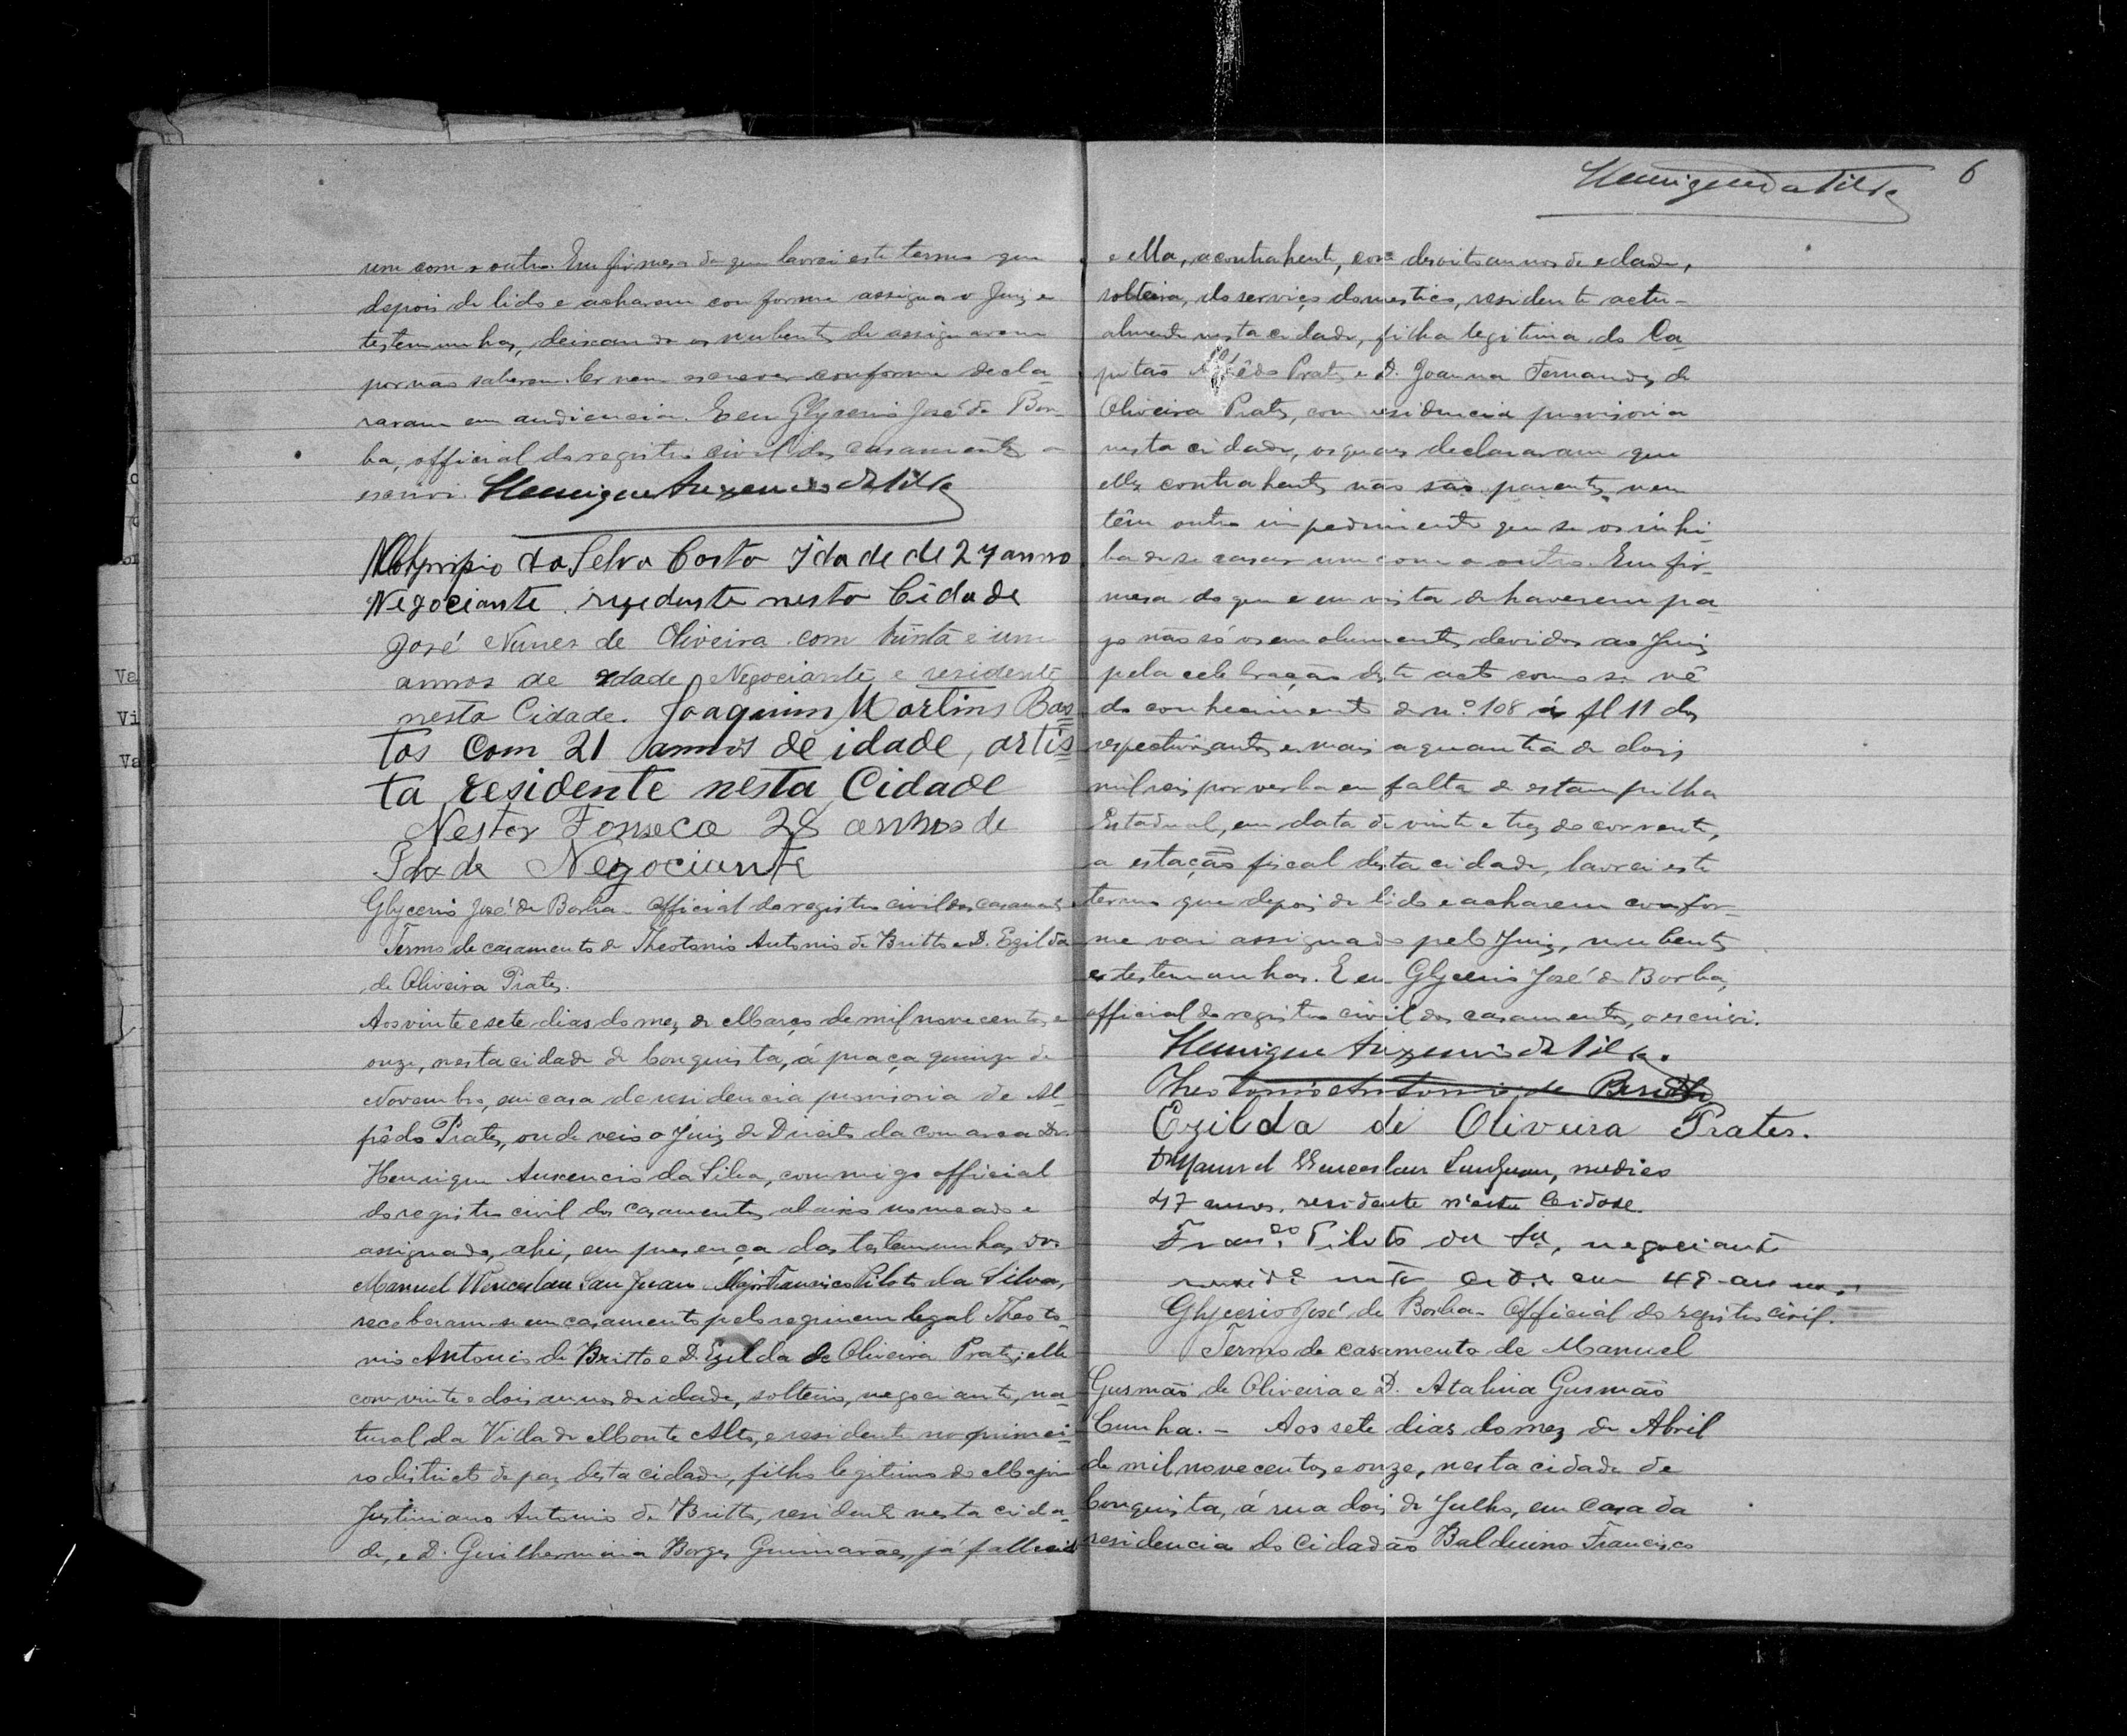 um com o outro. Em firmesa do que lavrei este termo que
depois de lido e acharem conforme assigna o Juiz e
testemunhas, deixando os nubentes de assignarem
por não saberem ler nem escrever conforme decla-
raram em audiencia. E eu Glycerio José de Bor-
ba, official do registro civil dos casamentos o
escrevi. Henrique Auxencio da Silva
Olympio da Selva Costa Idade de 27 anno
Negociante rezedente nesta Cidade
José Nunes de Oliveira com trinta e um
annos de edade Negociante e residente
nesta Cidade. Joaquim Martins Bas
tos com 21 annos de idade, artis
ta residente nesta Cidade
Nestor Fonseca 28 annos de
Idade Negociante
Glycerio José de Borba - Official do registro civil dos casamentos
Termo de casamento de Theotonio Antonio de Britto e D. Ezilda
de Oliveira Prates.
Aos vinte e sete dias do mez de Março de mil novecentos e
onze, nesta cidade de Conquista, á praça quinze de
Novembro, em casa de residencia provisoria de Al-
fêdo Prates, onde veio o Juiz de Direito da comarca Dr.
Henrique Auxencio da Silva, commigo official
do registro civil dos casamentos abaixo nomeado e
assignado, ahi, em presença das testemunhas dor.
Manuel Wenceslau San Juan Major Francisco Piloto da Silva,
receberam-se em casamento pelo regimem legal Theoto-
nio Antonio de Britto e D. Ezilda de Oliveira Prates; elle
com vinte e dois annos de idade, solteiro, negociante, na-
tural da Villa de Monte Alto, e residente no primei-
ro districto de paz desta cidade, filho legitimo do Major
Justiniano Antonio de Britto, residente nesta cida-
de, e D. Guilhermina Borges Guimarães, já fallecida
Henrique da Silva 6
e ella, a contrahente, com desoito annos de edade,
solteira, do serviço domestico, residente actu-
almente nesta cidade, filha legitima do Ca-
pitão Alfêdo Prates e D. Joanna Fernandes de
Oliveira Prates, com residencia provisoria
nesta cidade, os quaes declararam que
elles contrahentes não são parentes nem
têm outro impedimento que se os inhi-
ba de se casar um com o outro. Em fir-
mesa do que e em vista de haverem pa-
go não só os emolumentos devidos ao Juiz
pela celebração deste acto como se vê
do conhecimento de nº 108 á fl 11 dos
respectivos autos e mais a quantia de dois
mil reis por verba em falta de estampilha
Estadual, em data de vinte e trez do corrente,
a estação fiscal desta cidade, lavrei este
termo que depois de lido e acharem confor-
me vai assignado pelo Juiz, nubentes
e testemunhas. E eu Glycerio José de Borba,
official do registro civil dos casamentos, o escrevi.
Henrique Auxencio da Silva.
Theotonio Antonio de Britto
Ezilda de Oliveira Prates.
Dr Manuel Wenceslau SanJuan, medico
47 annos, residente n'esta Cidade.
Franco Piloto da Sa, negociante
nesta cide com 48 annos.
Glycerio José de Borba - Official do registro civil.
Termo de casamento de Manuel
Gusmão de Oliveira e D. Atalina Gusmão
Cunha. - Aos sete dias do mez de Abril
de mil novecentos e onze, nesta cidade de
Conquista, á rua dois de Julho, em casa da
residencia do Cidadão Balduino Francisco
Va
Vi
Va